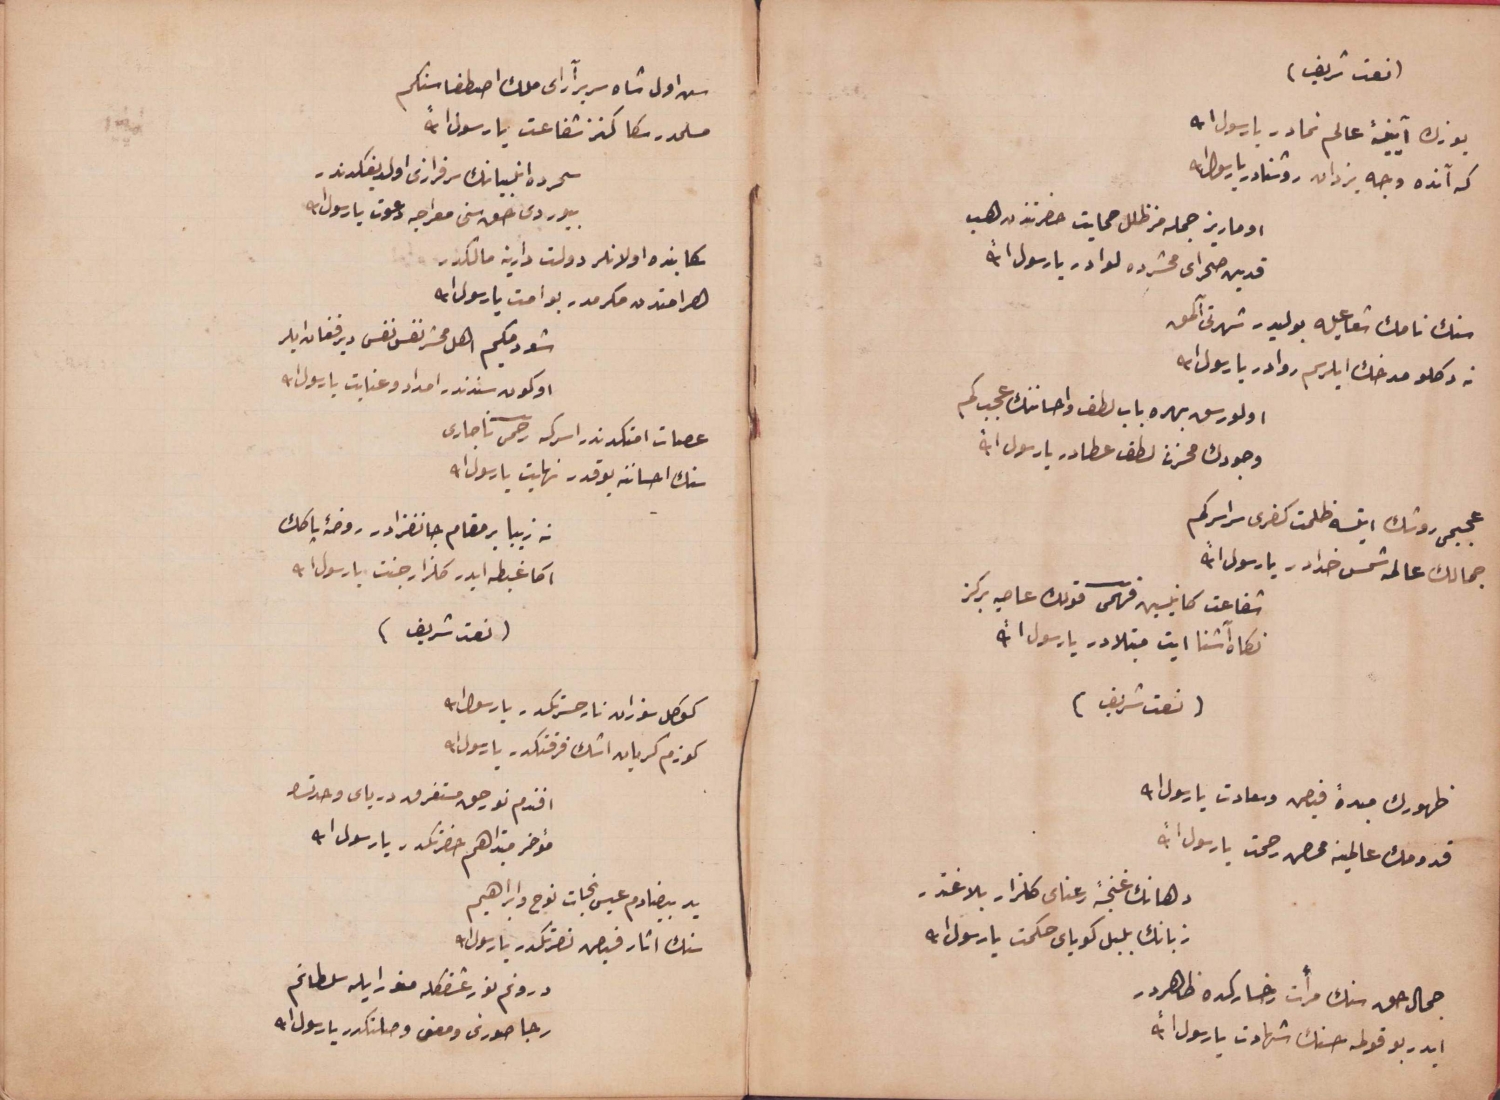 (نعت شریف)
یوزك آیینهٔ عالم نمادر یا رسول الله
كه آنده وجه یزدان روشنادر یا رسول الله
اومارز جمله مز ظل حمایت حضرتندن هب
قدین صحرای محشرده لوادر یا رسول الله
سنك نامك شفاعیله بولیدر شهرتی آلمق
نه دكلو مدحك ایلرسم روادر یا رسول الله
اولورسن بهره یاب لطف و احساننك عجب كم
وجودك مخزن لطف عطادر یا رسول الله
عجبمی روشك ایتسه ظلمت كفری سراسر كم
جمالك عالمه شمس خدادر یا رسول الله
شفاعت كانیسین فهمی قولك عاصیه بركز
نكاه آشنا ایت مبتلادر یا رسول الله
(نعت شریف)
ظهورك مبدأ فیض و سعادت یا رسول الله
قدومك عالمینه محض رحمت یا رسول الله
دهانك غنچهٔ رعنای كلزار بلاغتدر
زبانك بلبل كویای حكمت یا رسول الله
جمال حق سنك مرآت رخساركده ظاهردر
ایدر بو قوله حسنك شهادت یا رسول الله
سن اول شاه سریر آرای ملك اصطفاسنكم
مسلمدر سكا كنز شفاعت یا رسول الله
سحرده انبیانك سرفرازی اولدیغكدندر
بیوردی حق سنی معراجه دعوت یا رسول الله
سكا بنده اولانلر دولت دارینه مالكدر
هر امتدن مكرمدر بو امت یا رسول الله
شو دمكیم اهل محشر نفس نفسی دیر فغان ایلر
او كون سندندر امداد و عنایت یا رسول الله
عصات امتكدندر اسركه رحمی ناچاری
سنك احساننه یوقدر نهایت یا رسول الله
نه زیبا بر مقام جانفزادر روضهٔ پاكك
اكا غبطه ایدر كلزار جنت یا رسول الله
(نعت شریف)
كوكل سوزان نار حسرتكدر یا رسول الله
كوزم كریان اشك فرقتكدر یا رسول الله
افندم نور حق مستغرق دریای وحدتسه
مؤخر مبتداهم حضرتكدر یا رسول الله
ید بیضا دم عیسی نجات نوح و ابراهیم
سنك اثار فیض نصرتكدر یا رسول الله
درونم نور عشقكله منور ایله سلطانم
رجا صوری و معنی وصلتكدر یا رسول الله